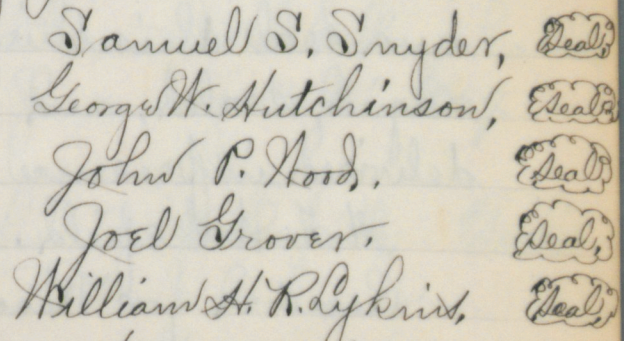 Samuel S. Snyder, Seal,
George W. Hutchinson, Seal,
John P. Wood. Seal,
Joel Grover. Seal,
William H. R. Lykins, Seal,